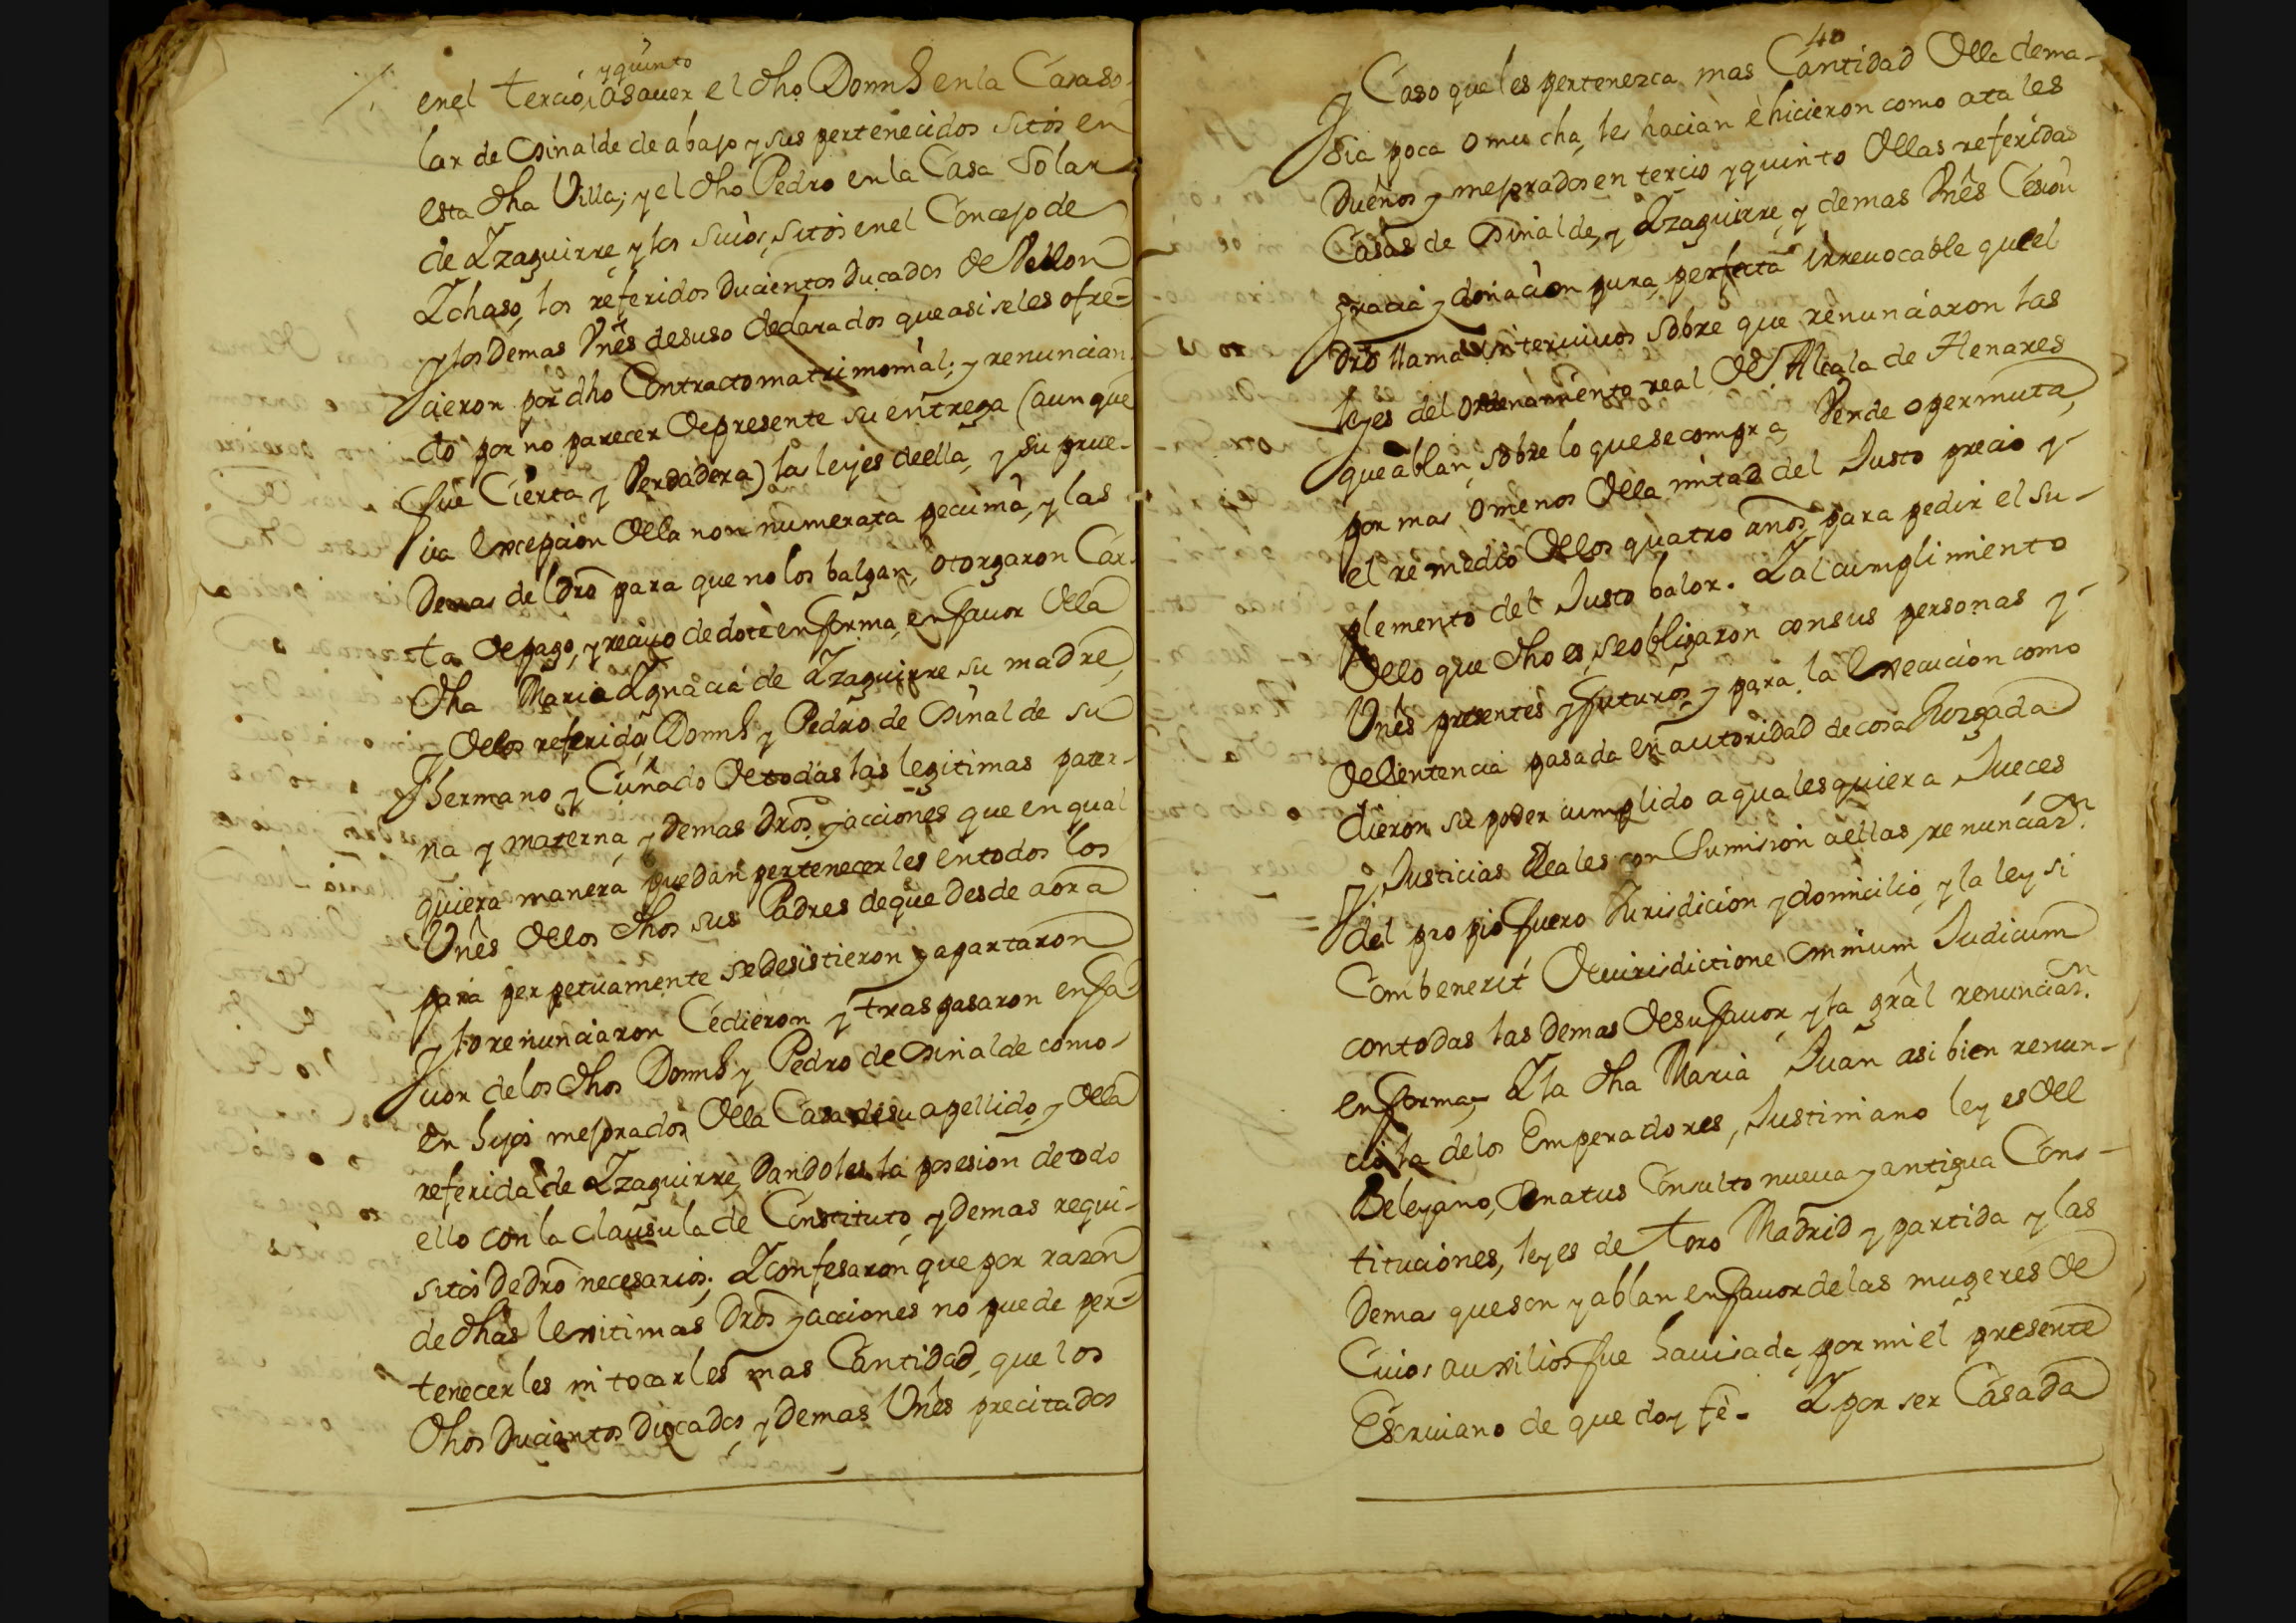 y quinto
en el tercio, asauer el dho Domingo en la Casa so-
lar de Sinalde de abajo y sus pertenecidos sitos en
esta dha Villa; y el dho Pedro en la Casa Solar
de Yzaguirre y los suios, sitos en el Concejo de
Ychaso, los referidos Ducientos Ducados de Vellon
y los demas Vnês desuso declarados que asi se les ofre=
cieron por dho Contracto matrimonial; y renuncian-
do por no parecer de presente su entrega (aunque
fue Cierta y Verdadera) las leyes de ella, y su prue-
ua excepcion della non numerata pecunia, y las
Demas del dro para que no los balgan, otorgaron Car-
ta de pago, y reciuo de dote en forma, en fauor della
dha Maria Ygnacia de Yzaguirre su madre,
y de los referidos Domingo y Pedro de Sinalde su
hermano y Cuñado de todas las legitimas pater-
na y materna, y demas dros y acciones que en qual
quiera manera puedan pertenecerles en todos los
Vnês de los dhos sus Padres de que desde aora
para perpetuamente se desistieron y apartaron
y lo renunciaron Cedieron y traspasaron en fa
uor de los dhos Domingo y Pedro de Sinalde como
en hijos mejorados della Casa de su apellido, y della
referida de Yzaguirre, Dandoles la posesion de todo
ello con la clausula de Constituto, y demas requi-
sitos de dro necesarios; Y confesaron que por razon
de dhas lexitimas dros y acciones no puede per=
tenecerles ni tocarles mas Cantidad, que los
dhos Ducientos Ducados, y demas Vnês precitados
40
Y Caso que les pertenezca mas Cantidad della dema-
sia poca o mucha, les hacian è hicieron como atales
Dueños y mejorados en tercio y quinto dellas referidas
Casas de Sinalde, y Yzaguirre, y demas Vnês Cesion
gracia y donacion pura, perfecta irreuocable que el
dro llama interuiuos sobre que renunciaron las
leyes del ordenamiento real de Alcala de Henares
que ablan, sobre lo que se compra, Vende o permuta,
por mas o menos della mitad del Justo precio y
el remedio de los quatro años, para pedir el su-
plemento del Justo balor. Y al cumplimiento
dello que dho es, se obligaron con sus personas y
Vnês presentes y futuros, y para la execucion como
de Sentencia pasada en autoridad de cosa Juzgada
dieron su poder cumplido a qualesquiera Jueces
y Justicias Reales con Sumision a ellas, renunciaron
del propio fuero Jurisdicion y domicilio, y la ley si
Combenerit de iurisdictione omnium Judicum
con todas las demas de su fauor, y la grâl renunciaon.
en forma, Y la dha Maria Juan asi bien renun-
cio la de los Emperadores, Justiniano leyes del
Beleyano, Senatus Consulto nueua y antigua Cons-
tituciones, leyes de toro Madrid y partida y las
Demas que son y ablan en fauor de las mugeres de
Cuios auxilios fue hauisada por mi el presente
Escriuano de que doy fê. Y por ser Casada